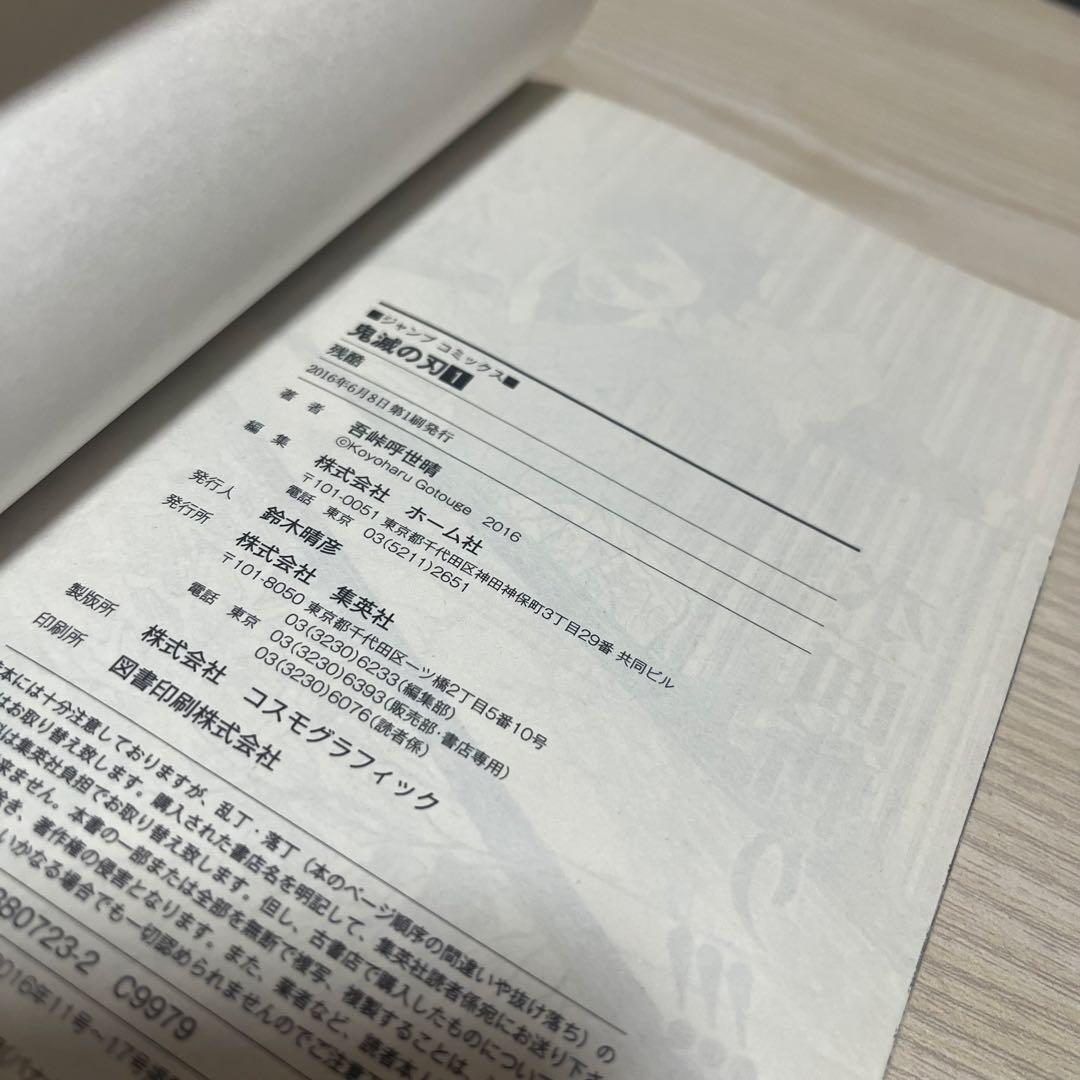 ■ジャンプ コミックス■
鬼滅の刃1
残酷
2016年6月8日第1刷発行
著者 吾峠呼世晴
©Koyoharu Gotouge 2016
編集 株式会社 ホーム社
〒101-0051 東京都千代田区神田神保町3丁目29番 共同ビル
電話 東京 03(5211)2651
発行人 鈴木晴彦
発行所 株式会社 集英社
〒101-8050 東京都千代田区一ツ橋2丁目5番10号
電話 東京 03(3230)6233(編集部)
03(3230)6393(販売部・書店専用)
03(3230)6076(読者係)
製版所 株式会社 コスモグラフィック
印刷所 図書印刷株式会社
本には十分注意しておりますが、乱丁・落丁(本のページ順序の間違いや抜け落ち)の
はお取り替え致します。購入された書店名を明記して、集英社読者係宛にお送り下さ
料は集英社負担でお取り替え致します。但し、古書店で購入したものについて
来ません。本書の一部または全部を無断で複写、複製することは、
除き、著作権の侵害となります。また、業者など、読者本
いかなる場合でも一切認められませんのでご注意
80723-2 C9979
2016年11号〜17号